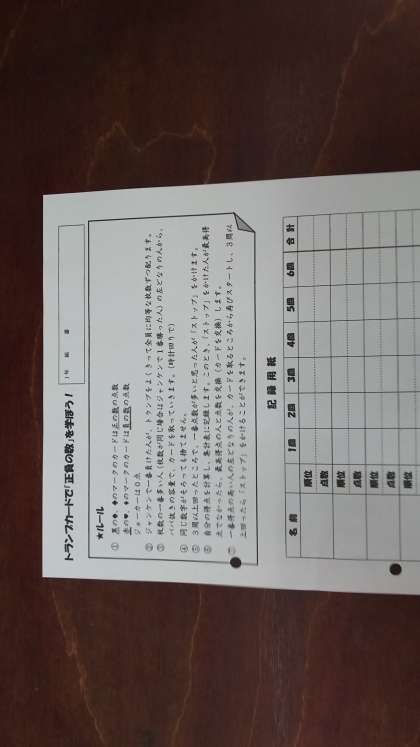 トランプカードで「正負の数」を学ぼう！
1年　組　番
★ルール
① 黒の♠、♣のマークのカードは正の数の点数
赤の♥、♦のマークのカードは負の数の点数
ジョーカーは0点
② ジャンケンで一番負けた人が、トランプをよくきって全員に均等な枚数ずつ配ります。
③ 枚数の一番多い人（枚数が同じ場合はジャンケンで1番勝った人）の左どなりの人から、
ババ抜きの容量で、カードを取っていきます。（時計回りで）
④ 同じ数字がそろっても捨てません。
⑤ 3周以上回ったところで、一番点数が多いと思った人が「ストップ」をかけます。
⑥ 自分の得点を計算し、集計表に記録します。このとき、「ストップ」をかけた人が最高得
点でなかったら、最高得点の人と点数を交換（カードを交換）します。
⑦ 一番得点の高い人の左どなりの人が、カードを取るところから再びスタートし、3周以
上回ったら「ストップ」をかけることができます。
記録用紙
名前 1回 2回 3回 4回 5回 6回 合計
順位
点数
順位
点数
順位
点数
順位